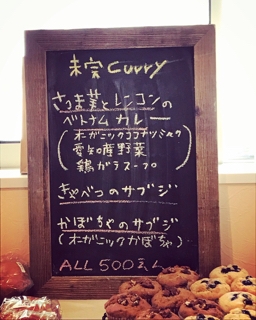 未完 curry
さつま芋とレンコンの
ベトナムカレー
(オーガニックココナッツミルク
愛知産野菜
鶏ガラスープ)
きゃべつのサブジ
かぼちゃのサブジ
(オーガニックかぼちゃ)
ALL 500えん